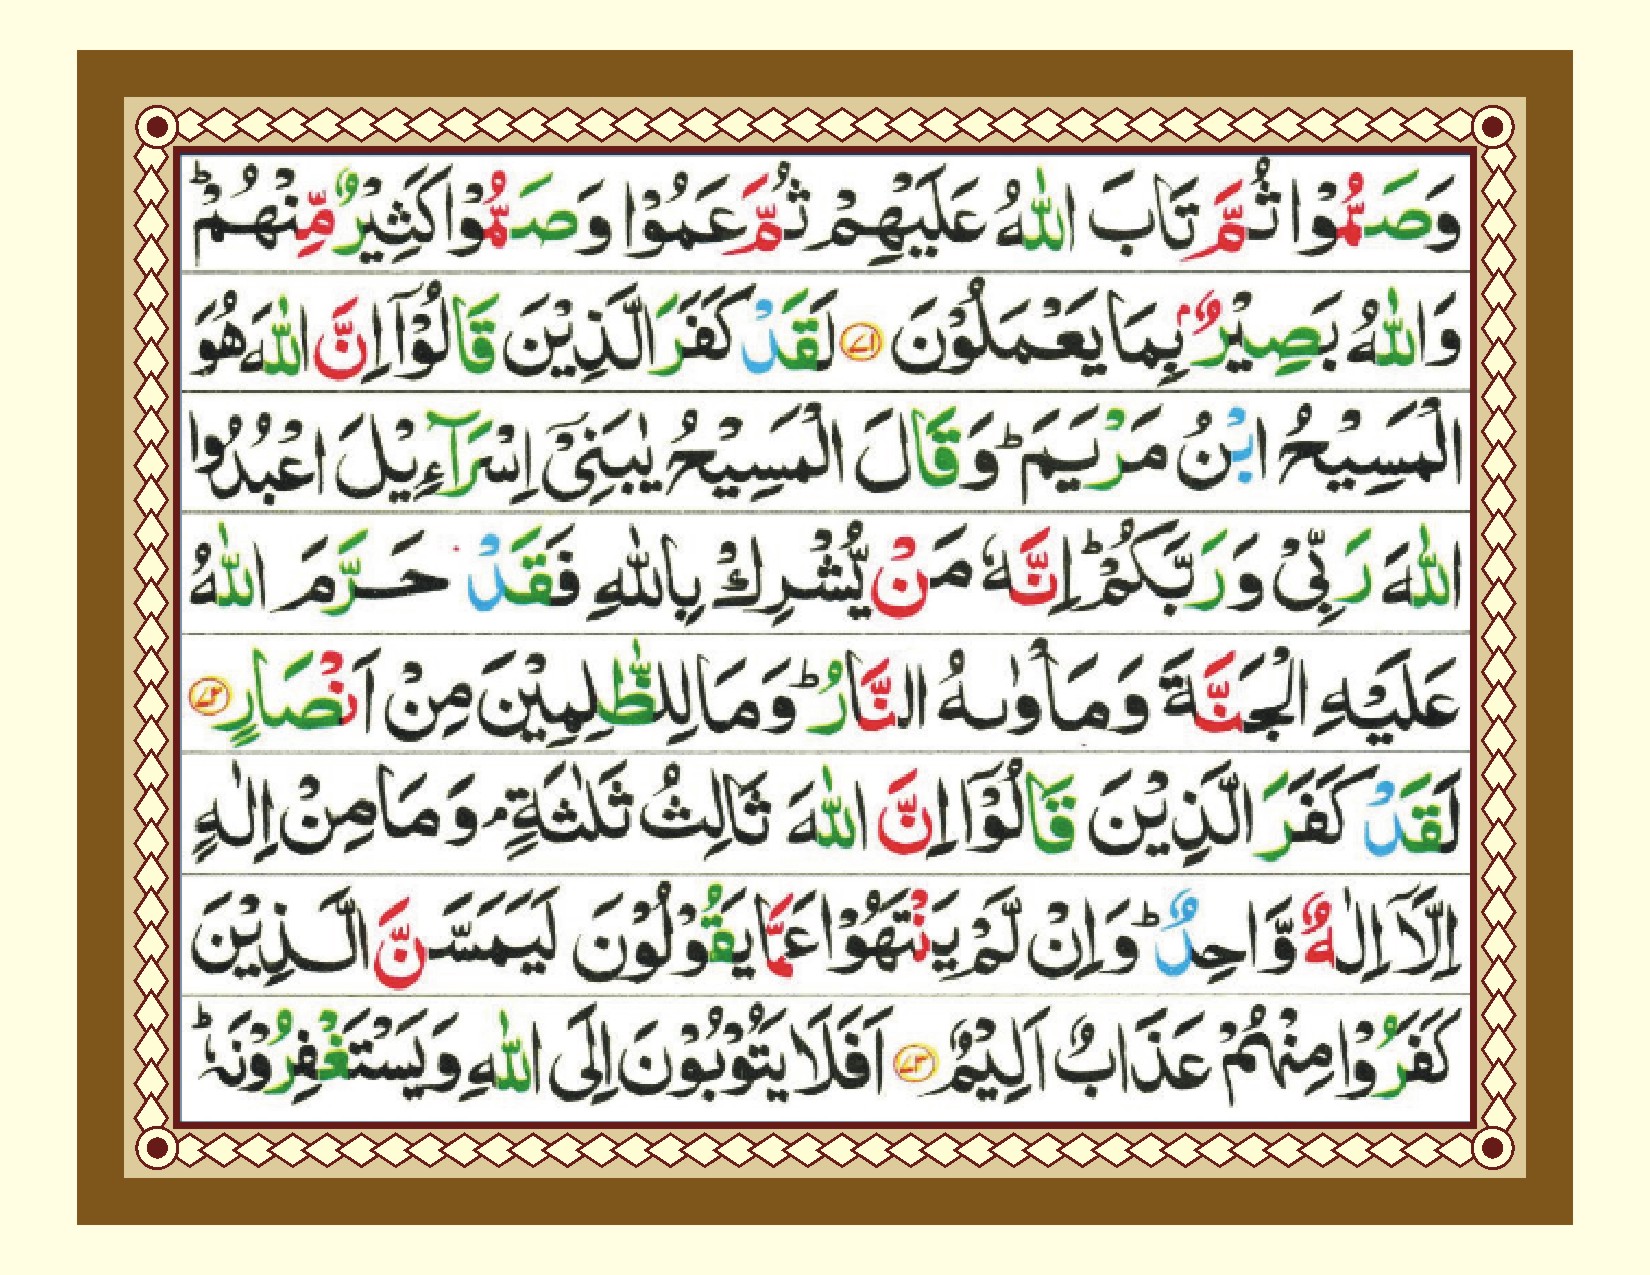 وَصَمُّوْا ثُمَّ تَابَ اللّٰهُ عَلَيْهِمْ ثُمَّ عَمُوْا وَصَمُّوْا كَثِيْرٌ مِّنْهُمْ ؕ
وَاللّٰهُ بَصِيْرٌۢ بِمَا يَعْمَلُوْنَ ﴿۷۱﴾ لَقَدْ كَفَرَ الَّذِيْنَ قَالُوْۤا اِنَّ اللّٰهَ هُوَ
الْمَسِيْحُ ابْنُ مَرْيَمَ ؕ وَقَالَ الْمَسِيْحُ يٰبَنِيْۤ اِسْرَآءِيْلَ اعْبُدُوا
اللّٰهَ رَبِّيْ وَرَبَّكُمْ ؕ اِنَّهٗ مَنْ يُّشْرِكْ بِاللّٰهِ فَقَدْ حَرَّمَ اللّٰهُ
عَلَيْهِ الْجَنَّةَ وَمَاْوٰىهُ النَّارُ ؕ وَمَا لِلظّٰلِمِيْنَ مِنْ اَنْصَارٍ ﴿۷۲﴾
لَقَدْ كَفَرَ الَّذِيْنَ قَالُوْۤا اِنَّ اللّٰهَ ثَالِثُ ثَلٰثَةٍ ۘ وَمَا مِنْ اِلٰهٍ
اِلَّاۤ اِلٰهٌ وَّاحِدٌ ؕ وَاِنْ لَّمْ يَنْتَهُوْا عَمَّا يَقُوْلُوْنَ لَيَمَسَّنَّ الَّذِيْنَ
كَفَرُوْا مِنْهُمْ عَذَابٌ اَلِيْمٌ ﴿۷۳﴾ اَفَلَا يَتُوْبُوْنَ اِلَى اللّٰهِ وَيَسْتَغْفِرُوْنَهٗ ؕ